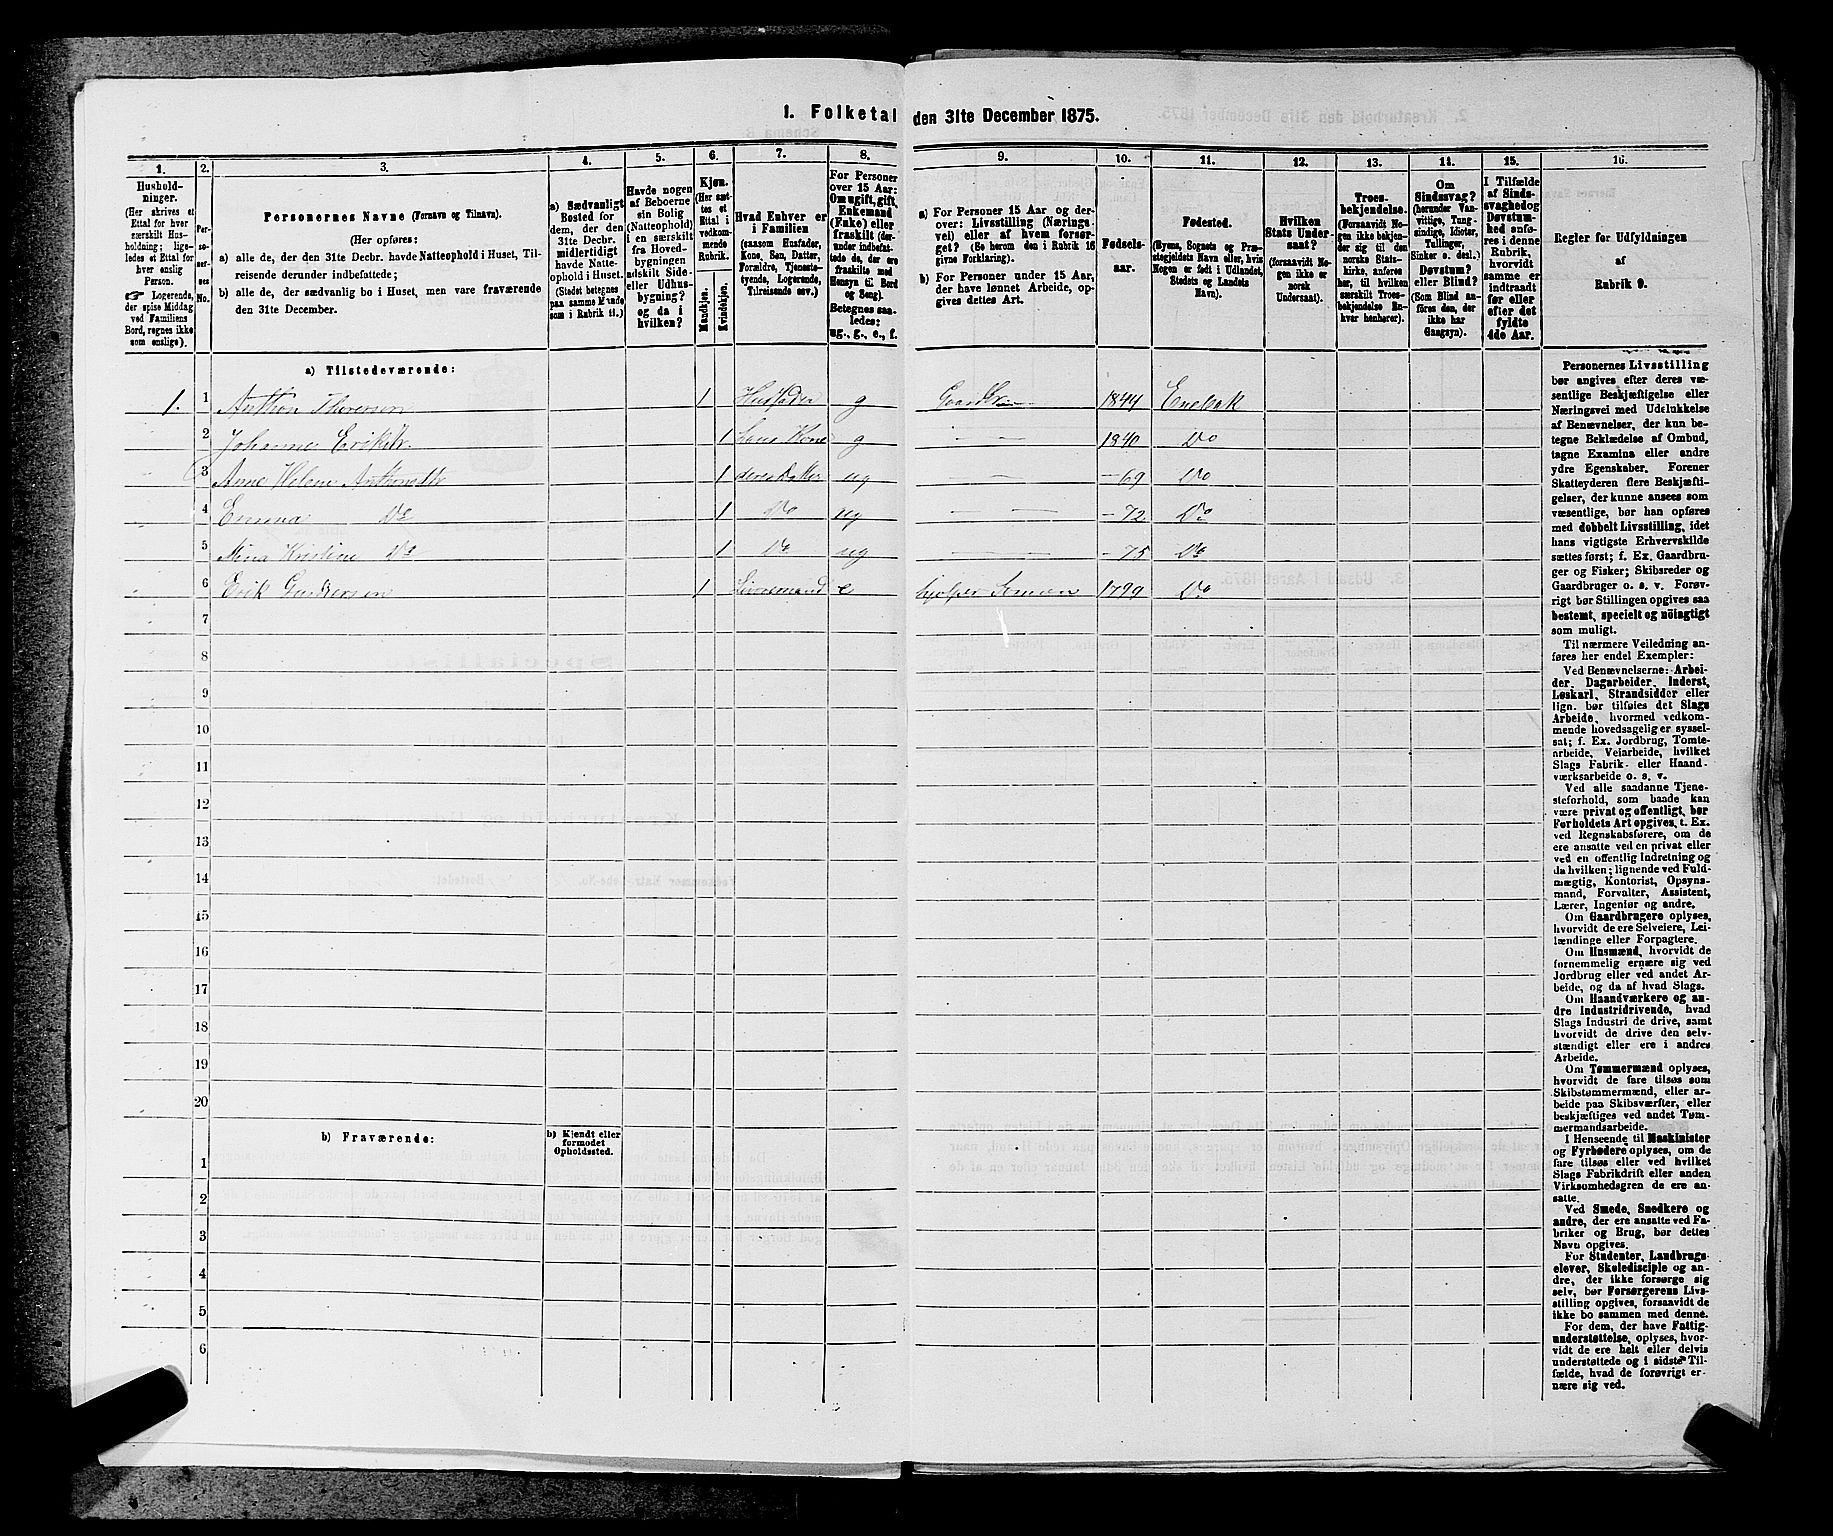 1. Folketal den 31te December 1875.
1.
2.
3.
4.
5.
6.
7.
8.
9.
10.
11.
12.
13.
14.
15.
16.
Hushold-
ninger.
(Her skrives et
Ettal for hver
særskilt Hus-
holdning; lige-
ledes et Ettal for
hver enslig
Person.
☞ Logerende,
der spise Middag
ved Familiens
Bord, regnes ikke
som enslige).
Per-
so-
ner-
nes
No.
Personernes Navne (Fornavn og Tilnavn).
(Her opføres:
a) alle de, der den 31te Decbr. havde Natteophold i Huset, Til-
reisende derunder indbefattede;
b) alle de, der sædvanlig bo i Huset, men vare fraværende
den 31te December.
a) Sædvanligt
Bosted for
dem, der den
31te Decbr.
midlertidigt
havde Natte-
ophold i Huset.
(Stedet betegnes
paa samme Maade
som i Rubrik 11.)
Havde nogen
af Beboerne
sin Bolig
(Natteophold)
i en særskilt
fra Hoved-
bygningen
adskilt Side-
eller Udhus-
bygning?
og da i
hvilken?
Kjøn.
(Her sæt-
tes et
Ettal i
vedkom-
mende
Rubrik.
Mandkjøn.
Kvindekjøn.
Hvad Enhver er
i Familien
(saasom Husfader,
Kone, Søn, Datter,
Forældre, Tjeneste-
tyende, Logerende,
Tilreisende osv.)
For Personer
over 15 Aar:
Om ugift, gift,
Enkemand
(Enke) eller
fraskilt (der-
under indbefat-
tede de, der ere
fraskilte med
Hensyn til Bord
og Seng).
Betegnes saa-
ledes:
ug., g., e., f.
a) For Personer 15 Aar og der-
over: Livsstilling (Nærings-
vei) eller af hvem forsør-
get? (Se herom den i Rubrik 16
givne Forklaring).
b) For Personer under 15 Aar,
der have lønnet Arbeide, op-
gives dettes Art.
Fødsels-
aar.
Fødested.
(Byens, Sognets og Præ-
stegjeldets Navn eller, hvis
Nogen er født i Udlandet,
Stedets og Landets
Navn).
Hvilken
Stats Under-
saat?
(forsaavidt No-
gen ikke er
norsk
Undersaat).
Troes-
bekjendelse.
(Forsaavidt No-
gen ikke bekjen-
der sig til den
norske Stats-
kirke, anføres
her, til hvilken
særskilt Troes-
bekjendelse En-
hver henhører).
Om
Sindssvag?
(herunder Van-
vittige, Tung-
sindige, Idioter,
Tullinger,
Sinker o. desl.)
Døvstum?
eller Blind?
(Som Blind an-
føres den, der
ikke har
Gangsyn).
I Tilfælde
af Sinds-
svaghed og
Døvstum-
hed anfø-
res i denne
Rubrik,
hvorvidt
samme er
indtraadt
før eller
efter det
fyldte
4de Aar.
Regler for Udfyldningen
af
Rubrik 9.
a) Tilstedeværende:
1. 1 Anthon Thoresen 1 Husfader g Gaardbr. 1844 Enebak
2 Johanne Eriksdtr. 1 hans Kone g — 1840 Do
3 Anne Helene Anthonsdtr 1 deres Datter ug — —69 Do
4 Emma Do 1 Do ug — —72 Do
5 Mina Kristine Do 1 Do ug — —75 Do
6 Erik Gundersen 1 e hjelper 1799 Do
7
8
9
10
11
12
13
14
15
16
17
18
19
20
b) Fraværende:
b) Kjendt eller
formodet
Opholdssted.
1
2
3
4
5
6
Personernes Livsstilling
bør angives efter deres væ-
sentlige Beskjæftigelse eller
Næringsvei med Udelukkelse
af Benævnelser, der kun be-
tegne Beklædelse af Ombud,
tagne Examina eller andre
ydre Egenskaber. Forener
Skatteyderen flere Beskjæfti-
gelser, der kunne ansees som
væsentlige, bør han opføres
med dobbelt Livsstilling, idet
hans vigtigste Erhvervskilde
sættes først; f. Ex. Gaardbru-
ger og Fisker; Skibsreder og
Gaardbruger o. s. v. Forøv-
rigt bør Stillingen opgives saa
bestemt, specielt og nöiagtigt
som muligt.
Til nærmere Veiledning an-
føres her endel Exempler:
Ved Benævnelserne: Arbei-
der, Dagarbeider, Inderst,
Løskarl, Strandsidder eller
lign. bør tilføies det Slags
Arbeide, hvormed vedkom-
mende hovedsagelig er syssel-
sat; f. Ex. Jordbrug, Tomte-
arbeide, Veiarbeide, hvilket
Slags Fabrik- eller Haand-
værksarbeide o. s. v.
Ved alle saadanne Tjene-
steforhold, som baade kan
være privat og offentligt, bør
Forholdets Art opgives, t. Ex.
ved Regnskabsførere, om de
ere ansatte ved en privat eller
ved en offentlig Indretning og
da hvilken; lignende ved Fuld-
mægtig, Kontorist, Opsyns-
mand, Forvalter, Assistent,
Lærer, Ingeniør og andre.
Om Gaardbrugere oplyses,
hvorvidt de ere Selveiere, Lei-
lændinge eller Forpagtere.
Om Husmænd, hvorvidt de
fornemmelig ernære sig ved
Jordbrug eller ved andet Ar-
beide, og da af hvad Slags.
Om Haandværkere og an-
dre Industridrivende, hvad
Slags Industri de drive, samt
hvorvidt de drive den selv-
stændigt eller ere i andres
Arbeide.
Om Tømmermænd oplyses,
hvorvidt de fare tilsøs som
Skibstømmermænd, eller ar-
beide paa Skibsværfter, eller
beskjæftiges ved andet Tøm-
mermandsarbeide.
I Henseende til Maskinister
og Fyrbødere oplyses, om de
fare tilsøs eller ved hvilket
Slags Fabrikdrift eller anden
Virksomhedsgren de ere an-
satte.
Ved Smede, Snedkere og
andre, der ere ansatte ved Fa-
briker og Brug, bør dettes
Navn opgives.
For Studenter, Landbrugs-
elever, Skoledisciple og an-
dre, der ikke forsørge sig
selv, bør Forsørgerens Livs-
stilling opgives, forsaavidt de
ikke bo sammen med denne.
For dem, der have Fattig-
understøttelse, oplyses, hvor-
vidt de ere helt eller delvis
understøttede og i sidste Til-
fælde, hvad de forøvrigt er-
nære sig ved.